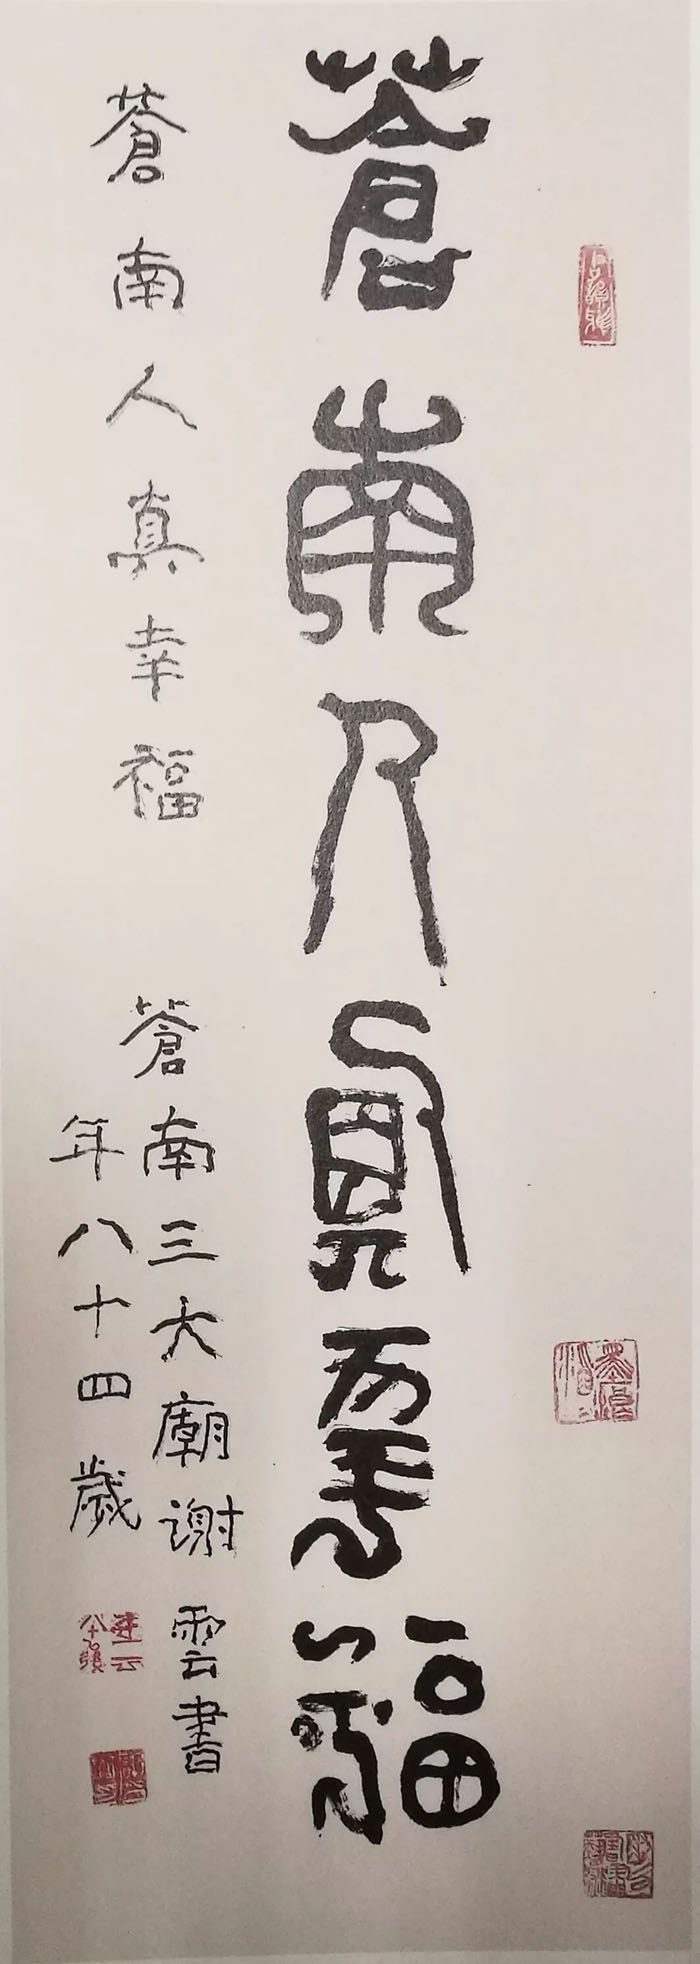 蒼南人真幸福
蒼南人真幸福
蒼南三大廟谢雲書
年八十四歲